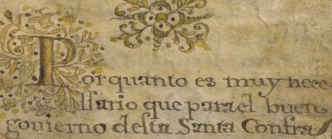 Porquanto es muy nece
ssario que parael buen
gouierno desta Santa Confra